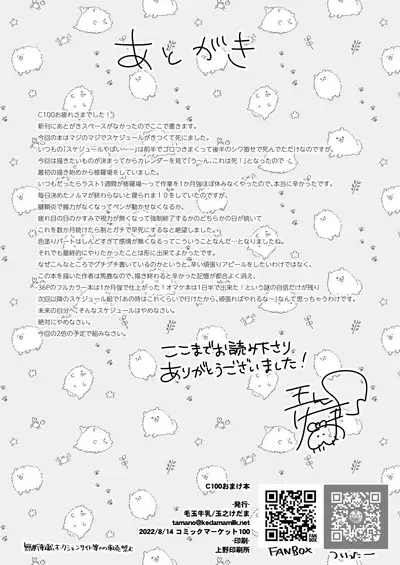 あとがき
C100お疲れさまでした!
新刊にあとがきスペースがなかったのでここで書きます。
今回の本はマジのマジでスケジュールがきつくて死にました。
いつもの「スケジュールやばい~~」は前半でゴロつきまくって後半のシワ寄せで死んでただけなのですが、
今回は描きたいものが決まってからカレンダーを見て「うーん、これは死!」となったので
最初の描き始めから修羅場をしていました。
いつもだったらラスト1週間が修羅場~って作業を1か月強ほぼ休みなくやったので、本当に辛かったです。
毎日決めたノルマが終わらないと寝られま10をしていたのですが、
腱鞘炎で握力がなくなってペンが動かせなくなるか、
疲れ目の目のかすみで視力が無くなって強制終了するかのどちらかの日が続いて
これを数か月続けたら割とガチで早死にするなと絶望しました。
色塗りパートはしんどすぎて感情が無くなるってこういうことなんだ…となりましたね。
それでも最終的にやりたかったことは形に出来てよかったです。
なぜこんなところでグチグチ書いているのかというと、辛い頑張りアピールをしたいわけではなく、
この本を描いた作者は馬鹿なので、描き終わると辛かった記憶が都合よく消え、
36Pのフルカラー本は1か月強で仕上がった!オマケ本は1日半で出来た!という謎の自信だけが残り
次回以降のスケジュール組で「あの時はこれくらいで行けたから、頑張ればやれるな~」なんて思っちゃうわけです。
未来の自分へ、そんなスケジュールはやめなさい。
絶対にやめなさい。
今回の2倍の予定で組みなさい。
ここまでお読み下さり
ありがとうございました!
玉之
けだま
C100おまけ本
-発行-
毛玉牛乳/玉之けだま
tamano@kedamamilk.net
2022/8/14 コミックマーケット100
-印刷-
上野印刷所
無断転載、オークションサイト等への販売禁止
FANBOX
FANBOX
ついったー